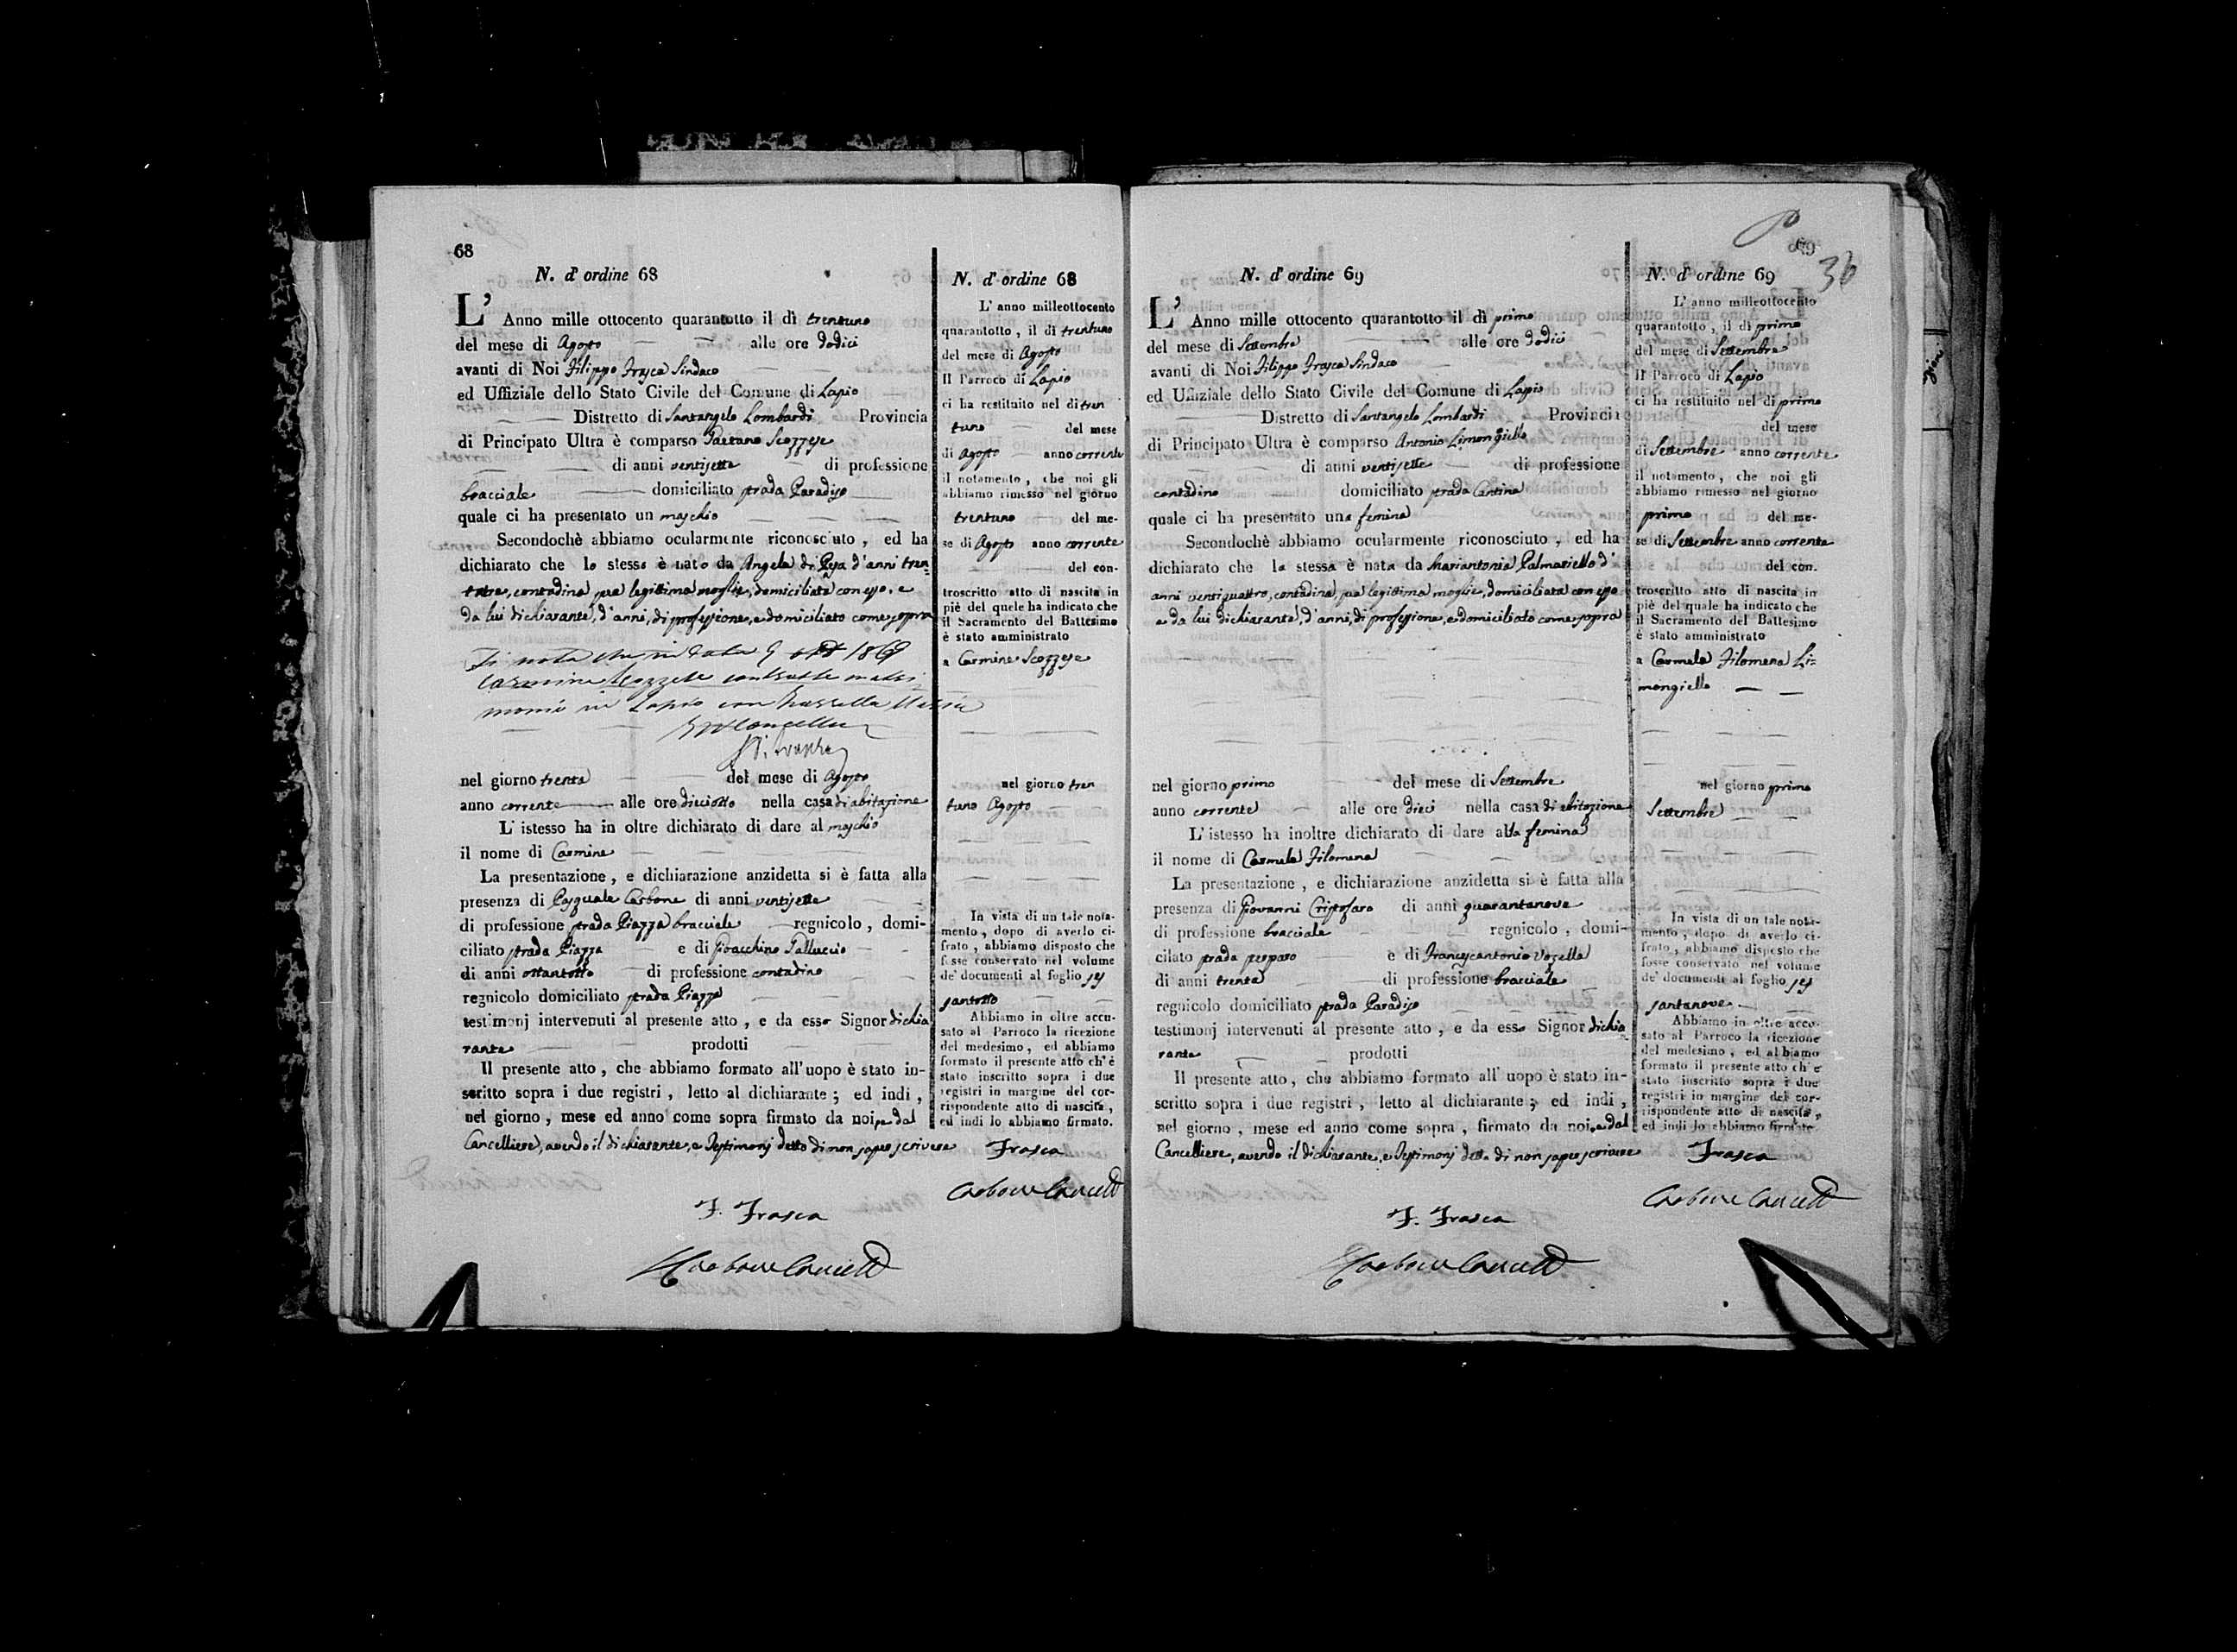 68
N. d' ordine 68
L' Anno mille ottocento quarantotto il dì trentuno
del mese di Agosto alle ore dodici
avanti di Noi Filippo Frasca Sindaco
ed Uffiziale dello Stato Civile del Comune di Lapio
Distretto di Santangelo Lombardi Provincia
di Principato Ultra è comparso Gaetano Scozzese
di anni ventisette di professione
bracciale domiciliato strada Paradiso
quale ci ha presentato un maschio
Secondochè abbiamo ocularmente riconosciuto, ed ha
dichiarato che lo stesso è nato da Angela di Pesa d'anni tren
tatre, contadina, sua legittima moglie, domiciliata con esso, e
da lui dichiarante, d'anni, di professione, e domiciliato come sopra
Si nota che in data 9
Carmine Scozzese contratto matri
monio in Lapio con
nel giorno trenta del mese di Agosto
anno corrente alle ore dieciotto nella casa di abitazione
L' istesso ha in oltre dichiarato di dare al maschio
il nome di Carmine
La presentazione, e dichiarazione anzidetta si è fatta alla
presenza di Pasquale Carbone di anni ventisette
di professione strada Piazza bracciale regnicolo, domi-
ciliato strada Piazza e di Gioacchino Galluccio
di anni ottantotto di professione contadino
regnicolo domiciliato strada Piazza
testimonj intervenuti al presente atto, e da esso Signor dichia
rante prodotti
Il presente atto, che abbiamo formato all'uopo è stato in-
scritto sopra i due registri, letto al dichiarante; ed indi,
nel giorno, mese ed anno come sopra firmato da noi, e dal
Cancelliere, avendo il dichiarante, e Testimonj detto di non saper scrivere
F. Frasca
Carbone Cancell
N. d' ordine 68
L' anno milleottocento
quarantotto, il dì trentuno
del mese di Agosto
Il Parroco di Lapio
ci ha restituito nel dì tren
tuno del mese
di Agosto anno corrente
il notamento, che noi gli
abbiamo rimesso nel giorno
trentuno del me-
se di Agosto anno corrente
del con-
troscritto atto di nascita in
piè del quele ha indicato che
il Sacramento del Battesimo
è stato amministrato
a Carmine Scozzese
nel giorno tren
tuno Agosto
In vista di un tale nota-
mento, dopo di averlo ci-
frato, abbiamo disposto che
fosse conservato nel volume
de' documenti al foglio ses
santotto
Abbiamo in oltre accu-
sato al Parroco la ricezione
del medesimo, ed abbiamo
formato il presente atto ch'è
stato inscritto sopra i due
registri in margine del cor-
rispondente atto di nascita,
ed indi lo abbiamo firmato.
Frasca
Carbone Cancell
69
36
N. d' ordine 69
L' Anno mille ottocento quarantotto il dì primo
del mese di Settembre alle ore dodici
avanti di Noi Filippo Frasca Sindaco
ed Uffiziale dello Stato Civile del Comune di Lapio
Distretto di Santangelo Lombardi Provincia
di Principato Ultra è comparso Antonio Limongiello
di anni ventisette di professione
contadino domiciliato strada Cantina
quale ci ha presentato una femina
Secondochè abbiamo ocularmente riconosciuto, ed ha
dichiarato che la stessa è nata da Mariantonia Palmariello d'
anni ventiquattro, contadina, sua legittima moglie, domiciliata con esso
e da lui dichiarante, d'anni, di professione, e domiciliato come sopra
nel giorno primo del mese di Settembre
anno corrente alle ore dieci nella casa di abitazione
L' istesso ha inoltre dichiarato di dare alla femina
il nome di Carmela Filomena
La presentazione, e dichiarazione anzidetta si è fatta alla
presenza di Giovanni Cristofaro di anni quarantanove
di professione bracciale regnicolo, domi-
ciliato strada e di Francescantonio Vozella
di anni trenta di professione bracciale
regnicolo domiciliato strada Paradiso
testimonj intervenuti al presente atto, e da esso Signor dichia
rante prodotti
Il presente atto, che abbiamo formato all' uopo è stato in-
scritto sopra i due registri, letto al dichiarante; ed indi,
nel giorno, mese ed anno come sopra, firmato da noi, e dal
Cancelliere, avendo il dichiarante, e Testimonj detto di non saper scrivere
F. Frasca
Carbone Cancell
N. d' ordine 69
L' anno milleottocento
quarantotto, il dì primo
del mese di Settembre
Il Parroco di Lapio
ci ha restituito nel dì primo
del mese
di Settembre anno corrente
il notamento, che noi gli
abbiamo rimesso nel giorno
primo del me-
se di Settembre anno corrente
del con-
troscritto atto di nascita in
piè del quale ha indicato che
il Sacramento del Battesimo
è stato amministrato
a Carmela Filomena Li=
mongiello
nel giorno primo
Settembre
In vista di un tale nota-
mento, dopo di averlo ci-
frato, abbiamo disposto che
fosse conservato nel volume
de' documenti al foglio ses
santanove
Abbiamo in oltre accu-
sato al Parroco la ricezione
del medesimo, ed abbiamo
formato il presente atto ch' è
stato inscritto sopra i due
registri in margine del cor-
rispondente atto di nascita,
ed indi lo abbiamo firmato
Frasca
Carbone Cancell